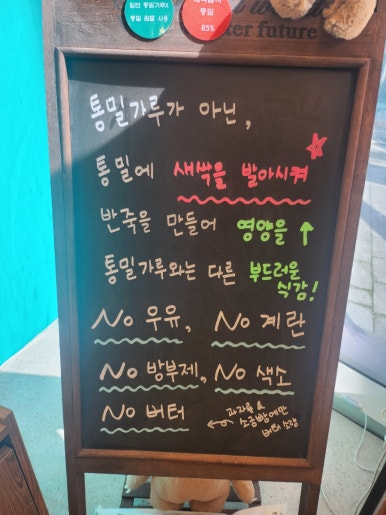 일반 통밀가루X
통밀 원물 사용
통밀
85%
ter future
통밀가루가 아닌,
통밀에 새싹을 발아시켜
반죽을 만들어 영양을 ↑
통밀가루와는 다른 부드러운
식감!
No 우유, No 계란
No 방부제, No 색소
No 버터
과자류 &
소금빵에만
버터 소량